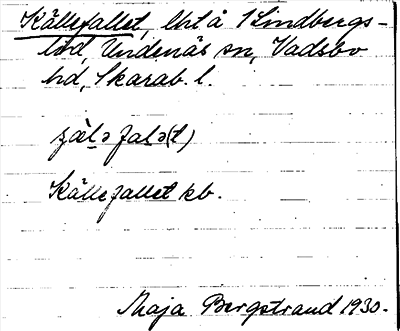 Källefallet, lht å Lindbergs-
lid, Undenäs sn, Vadsbo
hd, Skarab. l.
Källefallet kb.
Maja Bergstrand 1930.